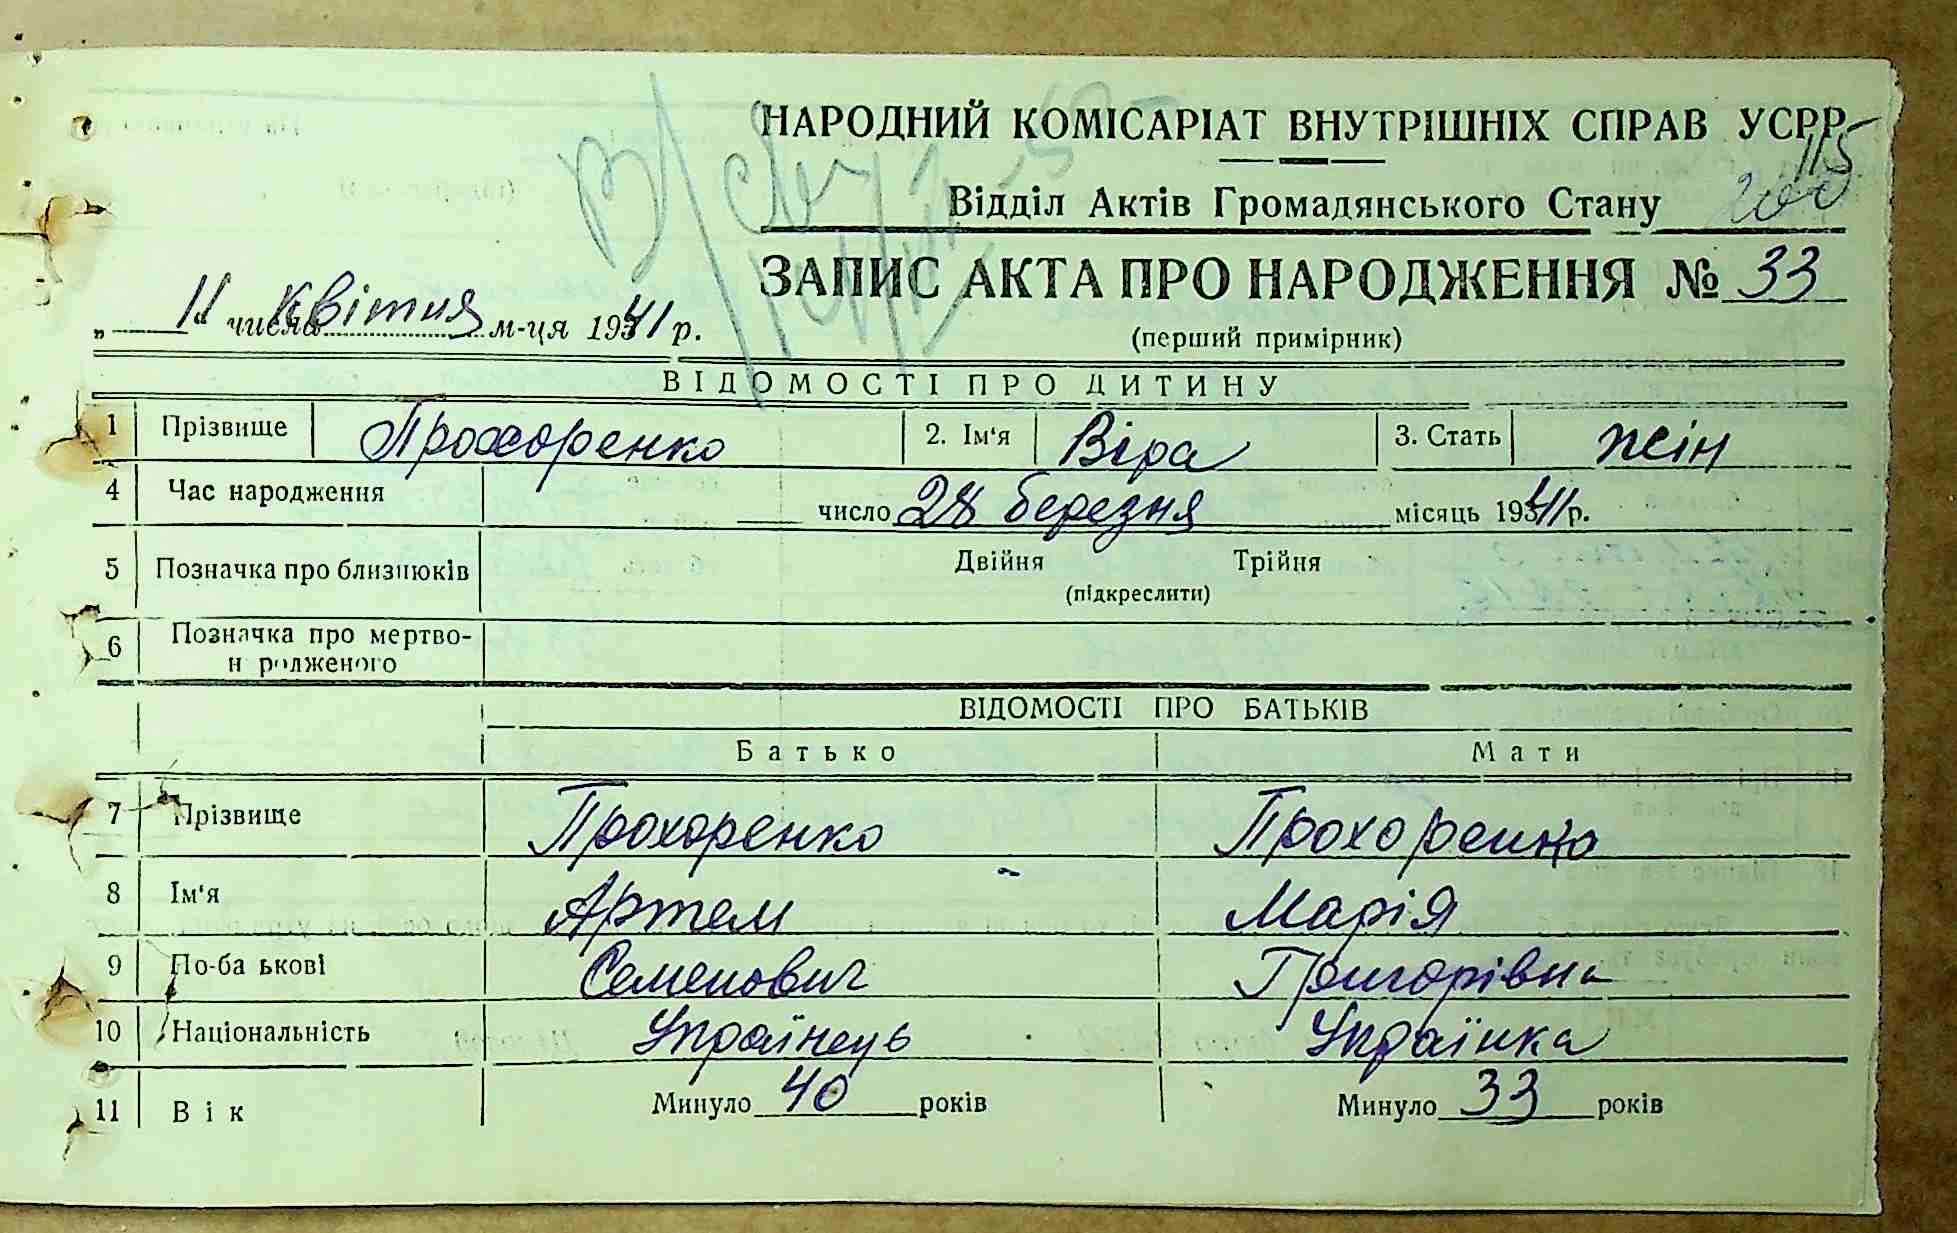 НАРОДНИЙ КОМІСАРІАТ ВНУТРІШНІХ СПРАВ УСРР
115
200
Відділ Актів Громадянського Стану
ЗАПИС АКТА ПРО НАРОДЖЕННЯ № 33
„ 11 " числа Квітня м-ця 1941 р.
(перший примірник)
ВІДОМОСТІ ПРО ДИТИНУ
1 Прізвище Прохоренко 2. Ім'я Віра 3. Стать жін
4 Час народження число 28 березня місяць 1941 р.
5 Позначка про близнюків Двійня Трійня
(підкреслити)
6 Позначка про мертво-
н родженого
ВІДОМОСТІ ПРО БАТЬКІВ
Батько Мати
7 Прізвище Прохоренко Прохоренко
8 Ім'я Артем Марія
9 По-ба ькові Семенович Григорівна
10 Національність Українець Українка
11 Вік Минуло 40 років Минуло 33 років